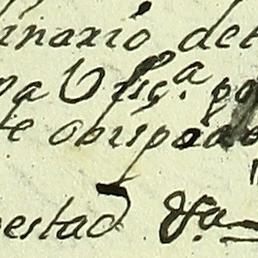 dinario det
na Ofiç.ª po
te obispado
pestad &.ª